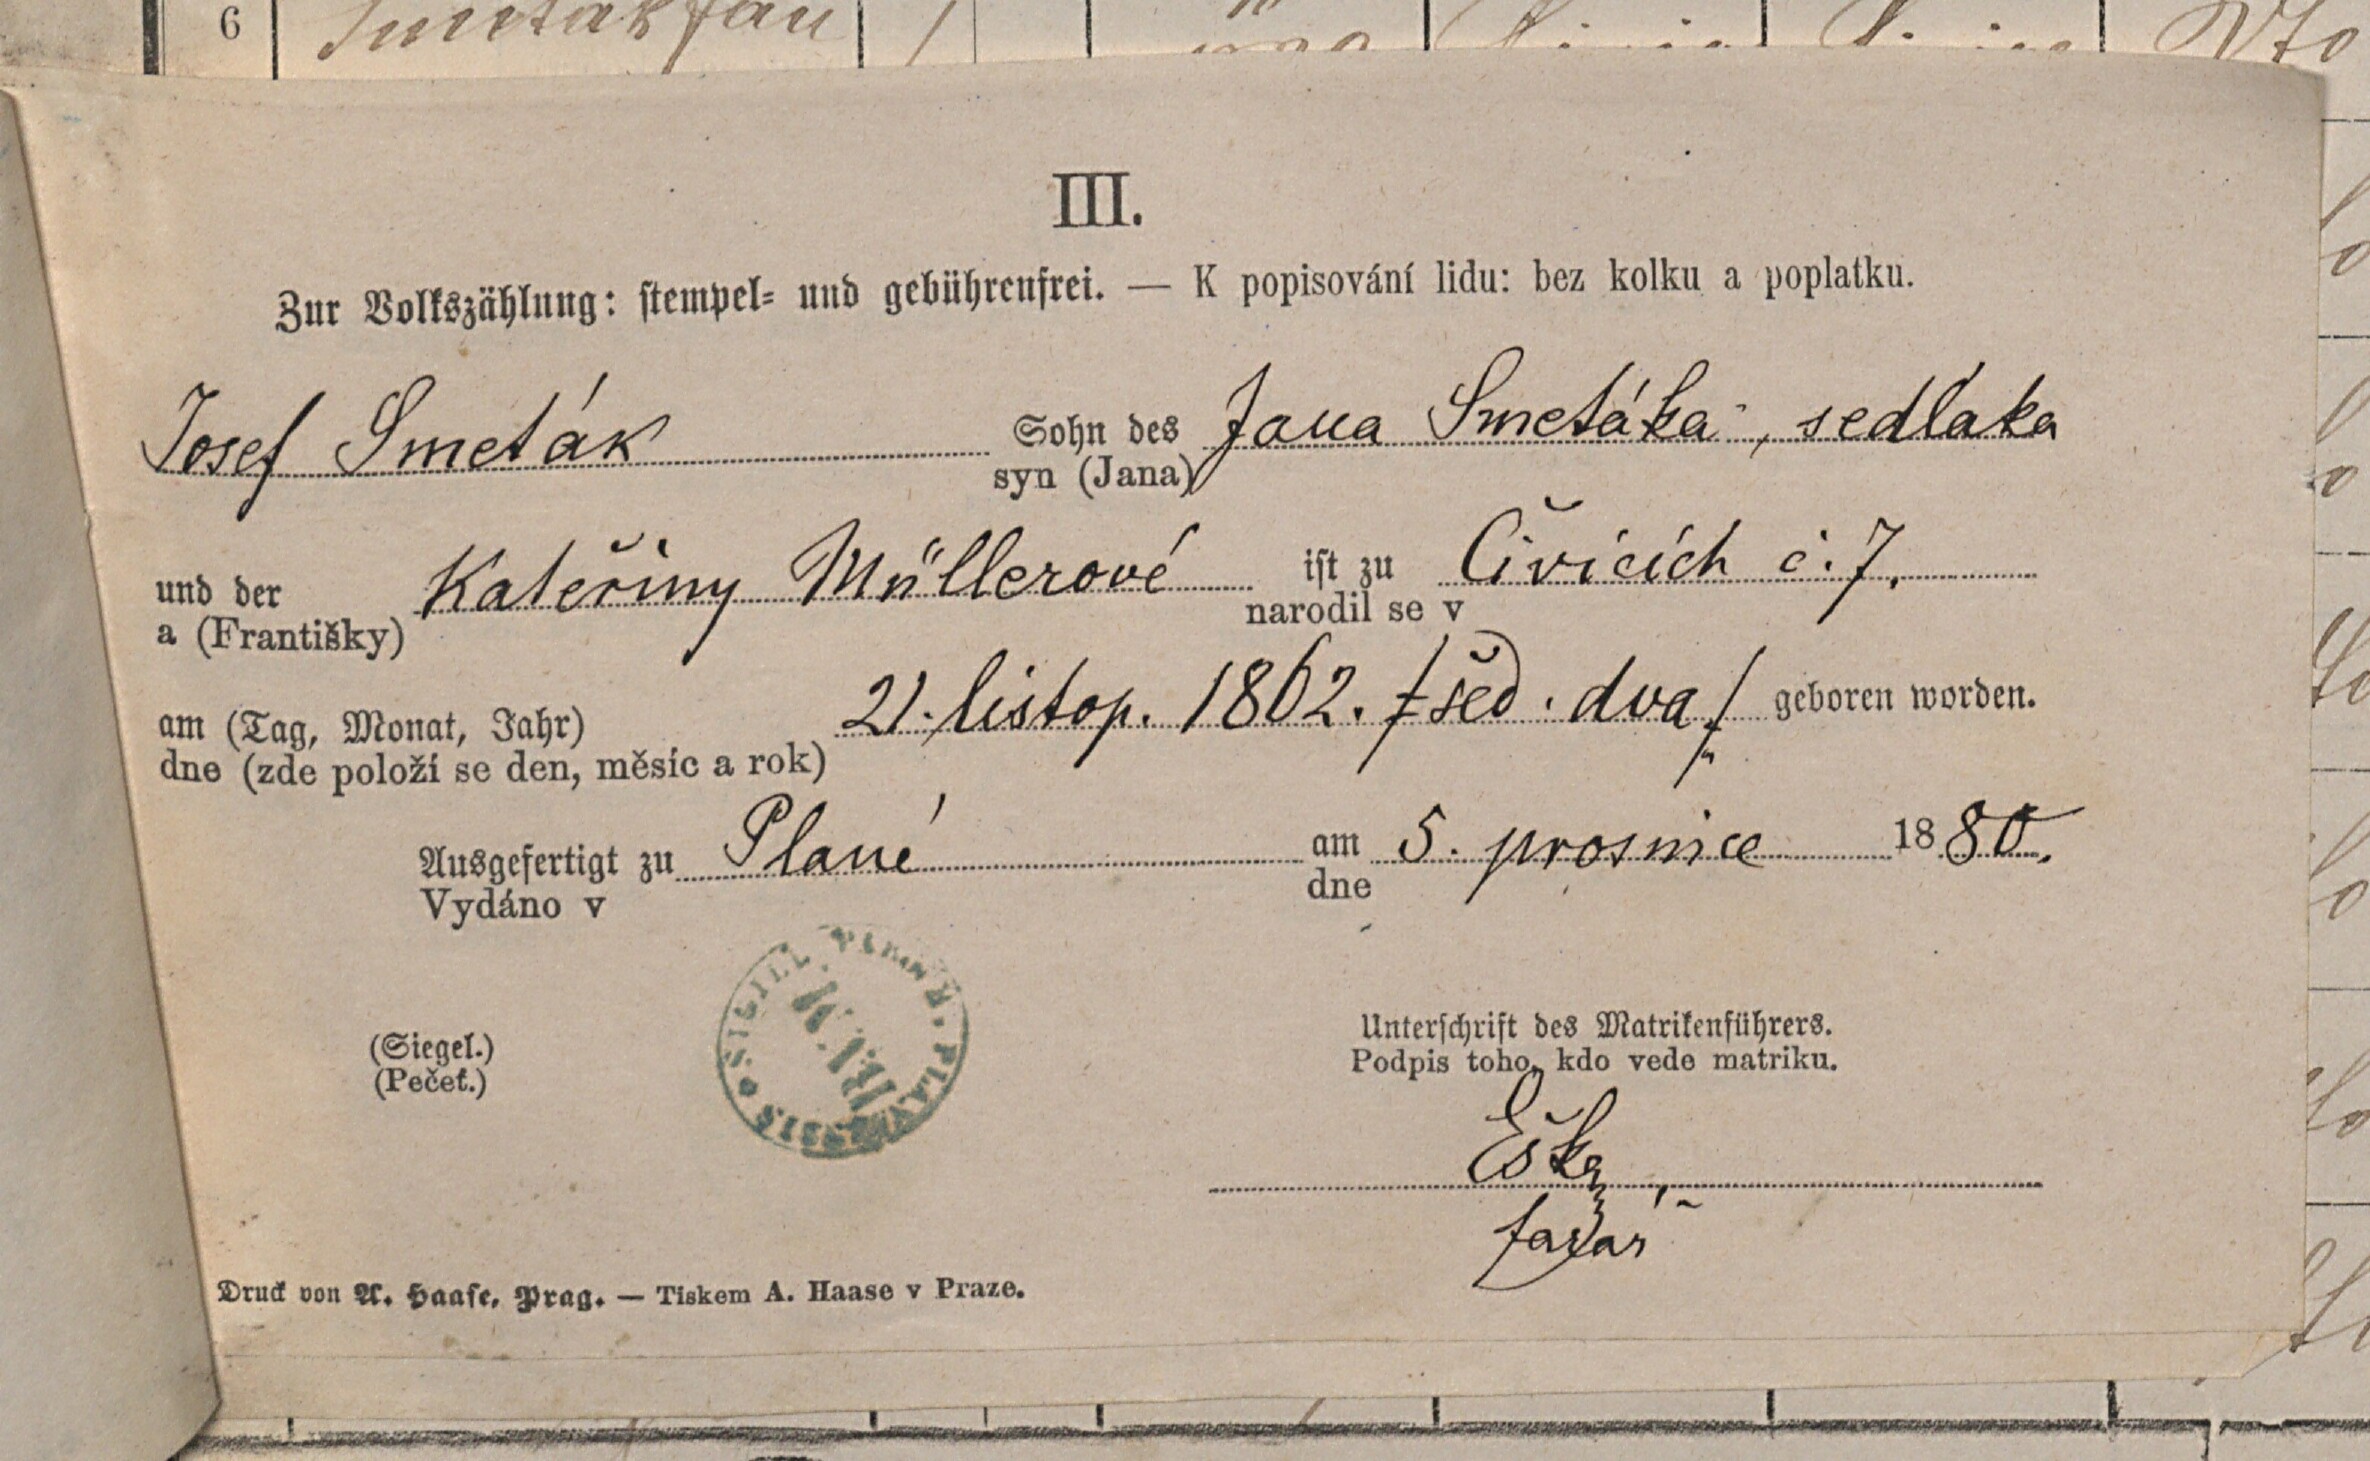 6 Smeták Jan
III.
Zur Volkszählung: stempel- und gebührenfrei. — K popisování lidu: bez kolku a poplatku.
Josef Smeták Sohn des Jana Smetáka, sedláka
syn (Jana)
und der Kateřiny Müllerové ist zu Čivicích č. 7.
a (Františky) narodil se v
am (Tag, Monat, Jahr) 21. listop. 1862. /: šed. dva :/ geboren worden.
dne (zde položí se den, měsíc a rok)
Ausgefertigt zu Plané am 5. prosince 1880.
Vydáno v dne
SIGILL. PLANENSIS
(Siegel.)
(Pečeť.)
Unterschrift des Matrikenführers.
Podpis toho, kdo vede matriku.
farář
Druck von A. Haase, Prag. — Tiskem A. Haase v Praze.